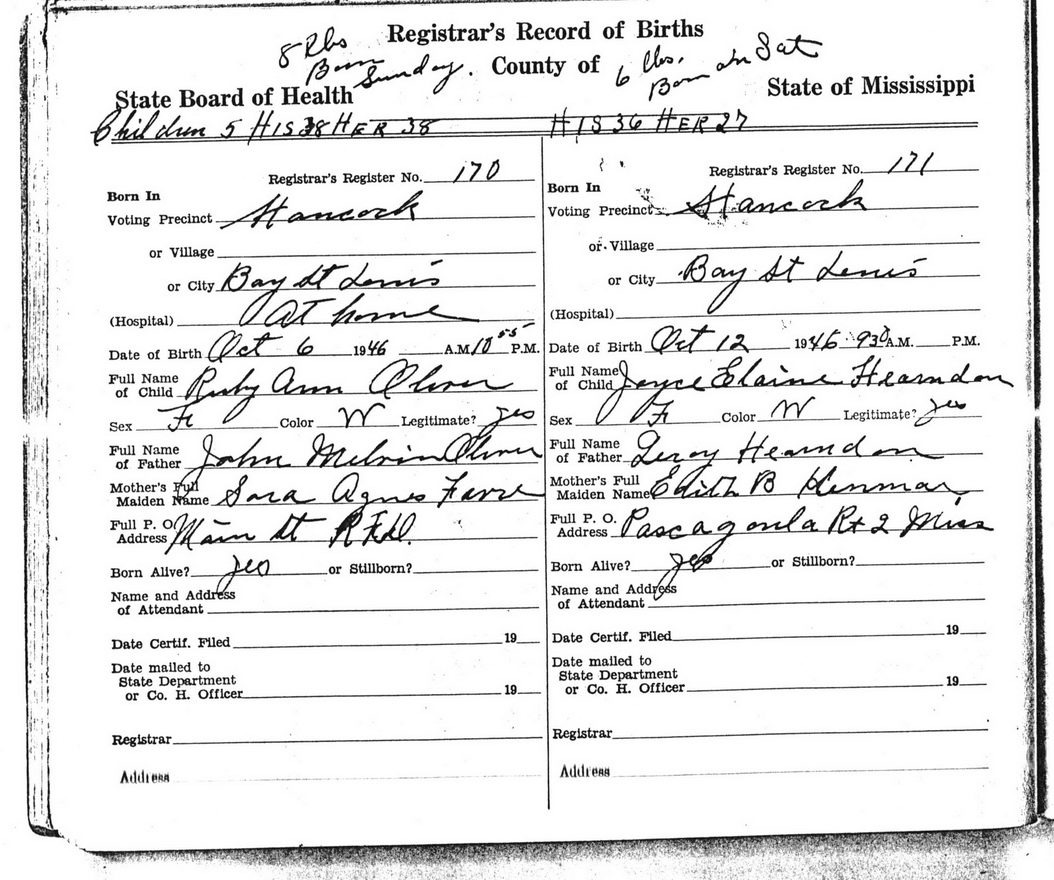 Registrar's Record of Births
8 lbs
Born
Sunday.
County of
6 lbs.
Born on Sat
State Board of Health
State of Mississippi
Children 5 HIS 38 HER 38
HIS 36 HER 27
Registrar's Register No. 170
Born In
Voting Precinct Hancock
or Village
or City Bay St Louis
(Hospital) At home
Date of Birth Oct 6 1946 A.M. 10 55 P.M.
Full Name
of Child Ruby Ann Oliver
Sex F Color W Legitimate? yes
Full Name
of Father John Melvin Oliver
Mother's Full
Maiden Name Sara Agnes Favre
Full P. O.
Address Main St R.F.D.
Born Alive? yes or Stillborn?
Name and Address
of Attendant
Date Certif. Filed 19
Date mailed to
State Department
or Co. H. Officer 19
Registrar
Address
Registrar's Register No. 171
Born In
Voting Precinct Hancock
or Village
or City Bay St Louis
(Hospital)
Date of Birth Oct 12 1946 930 A.M. P.M.
Full Name
of Child Joyce Elaine Hearndon
Sex F Color W Legitimate? yes
Full Name
of Father Leroy Hearndon
Mother's Full
Maiden Name Edith B
Full P. O.
Address Pascagoula Rt 2 Miss
Born Alive? yes or Stillborn?
Name and Address
of Attendant
Date Certif. Filed 19
Date mailed to
State Department
or Co. H. Officer 19
Registrar
Address